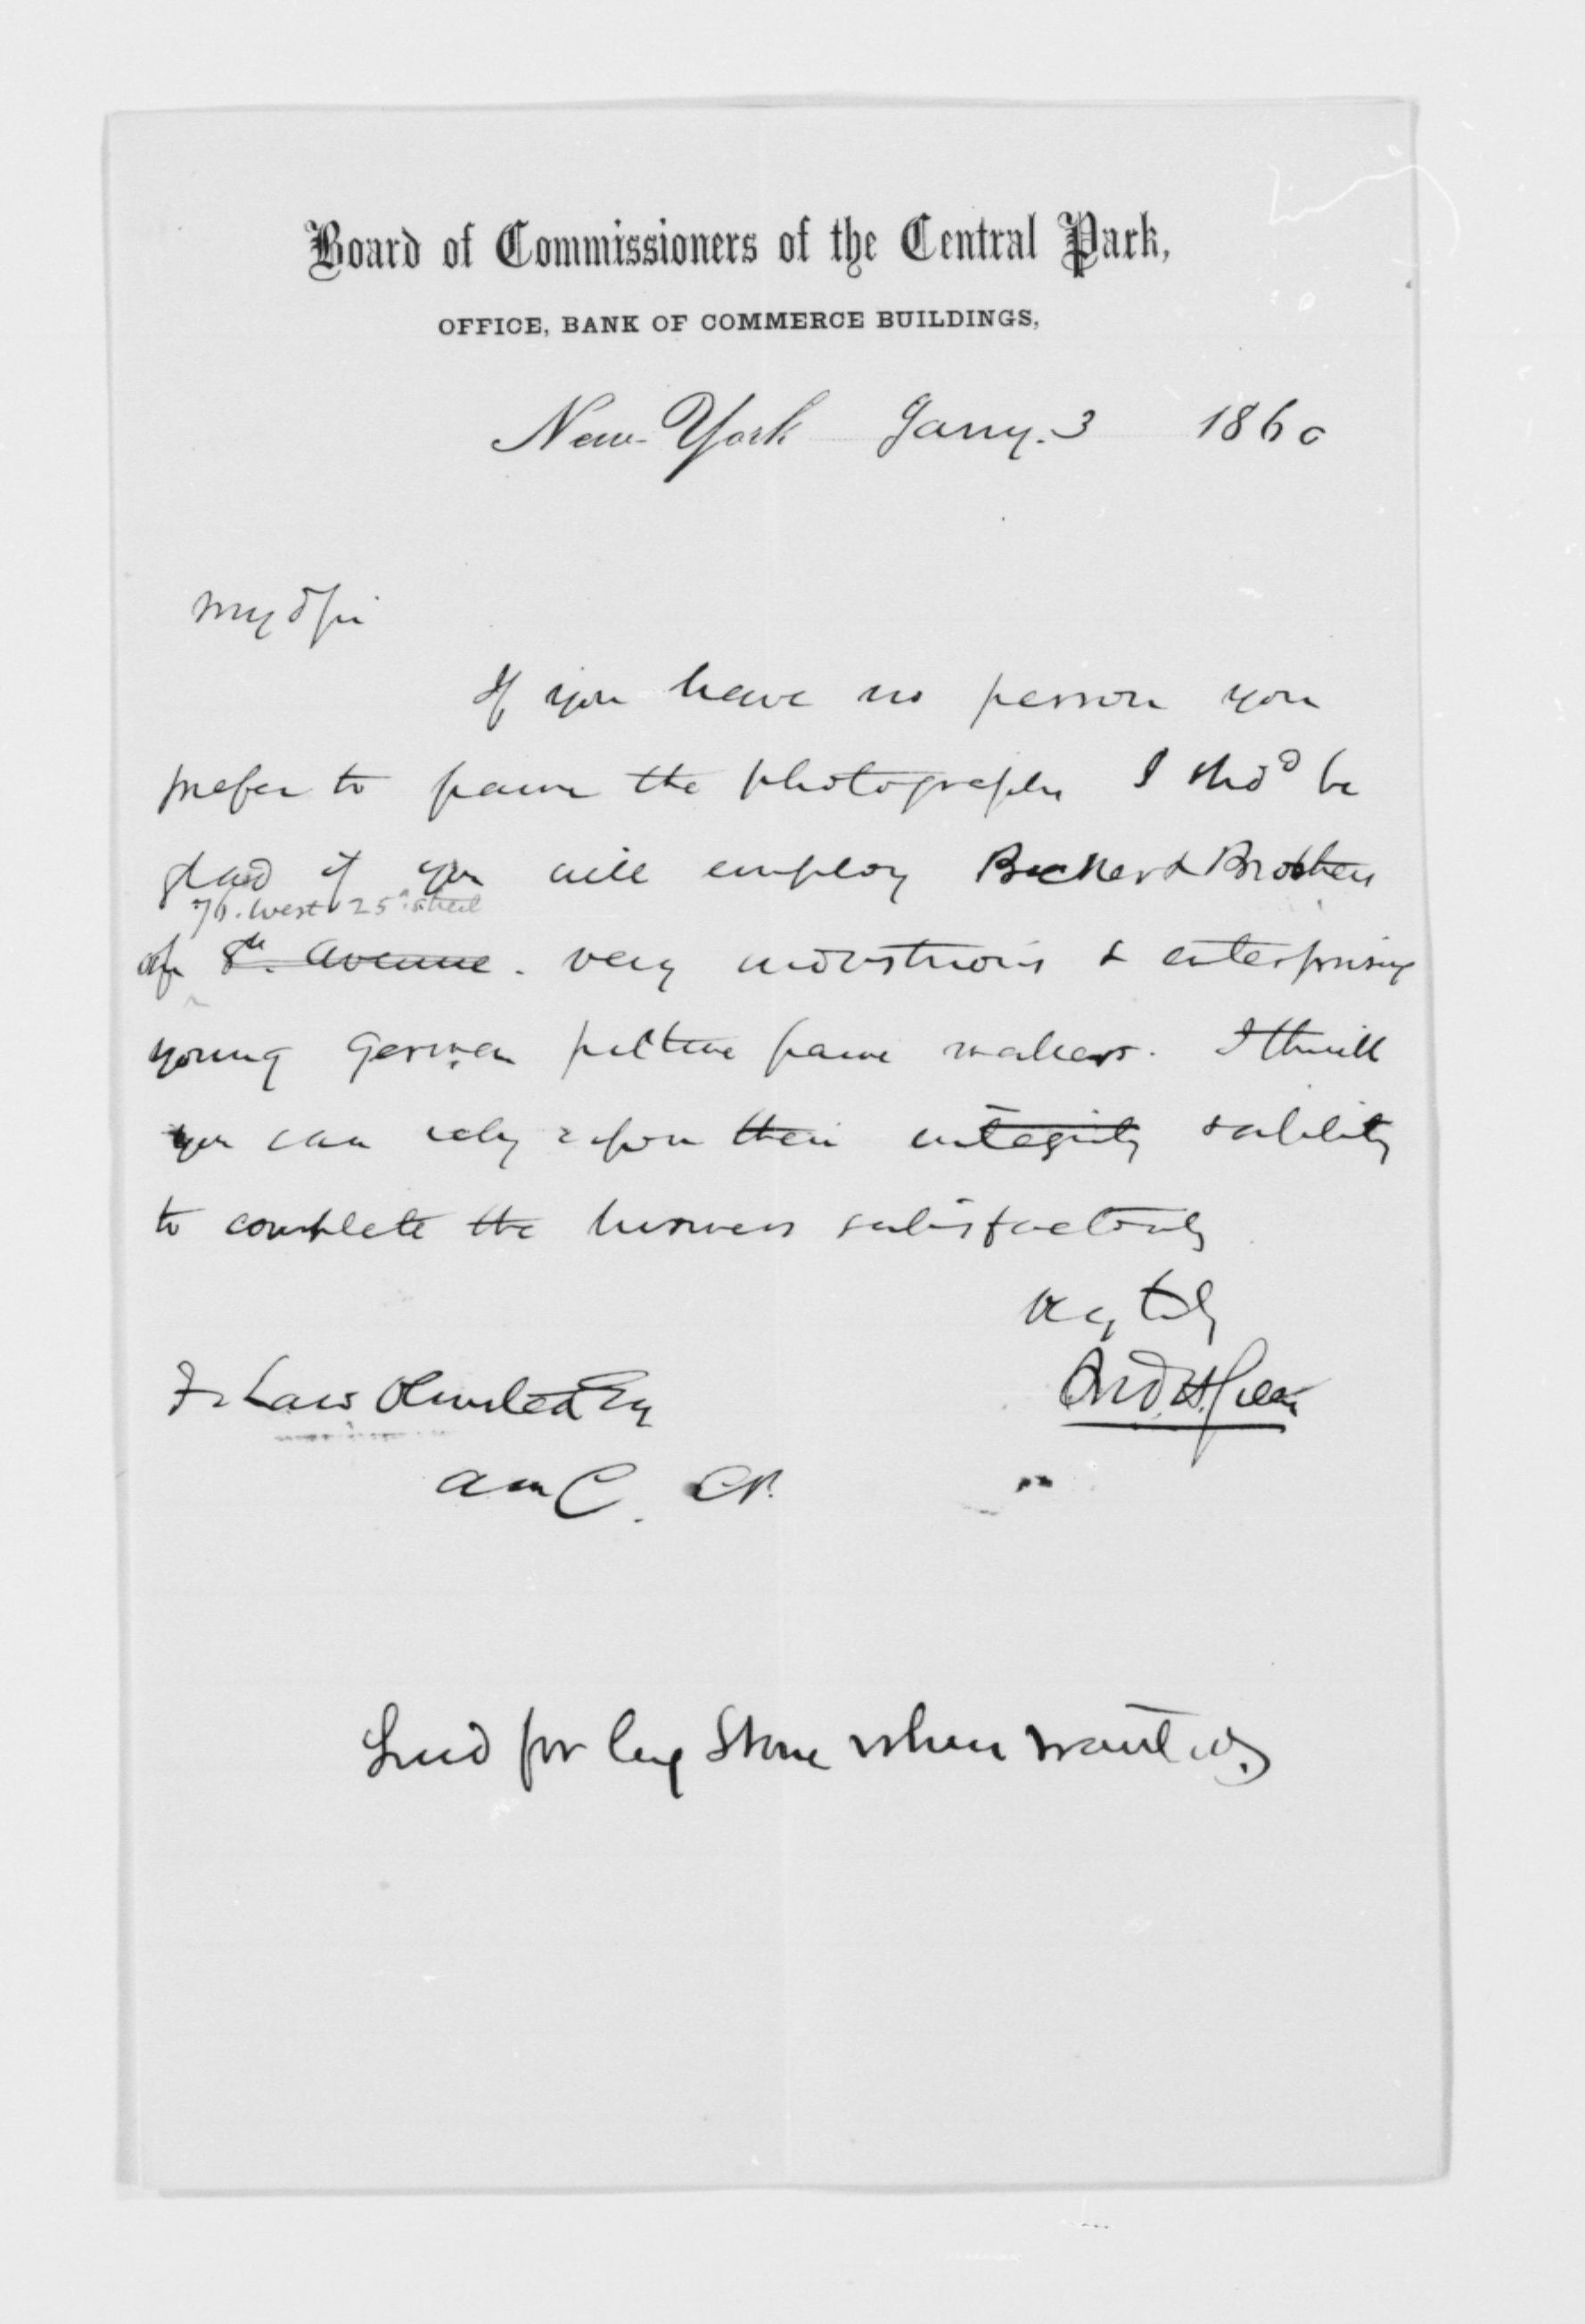 Board of Commissioners of the Central Park,
OFFICE, BANK OF COMMERCE BUILDINGS,
New-York Jany. 3 1860
My d Sir
If you have no person you
prefer to frame the photographs I shod be
glad if you will employ Beckerd Brothers
76. West 25th street
of 8th. Avenue. very industrious & enterprising
young German picture frame makers. I think
you can rely upon their integrity & ability
to complete the business satisfactorily
Very truly
Fr Law Olmsted Esq And. H. Green
C. CP.
Send for Stone when wanted.